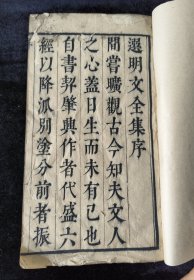 選明文全集序
間嘗曠觀古今知夫文人
之心蓋日生而未有已也
自書契肇興作者代盛六
經以降派別塗分前者振